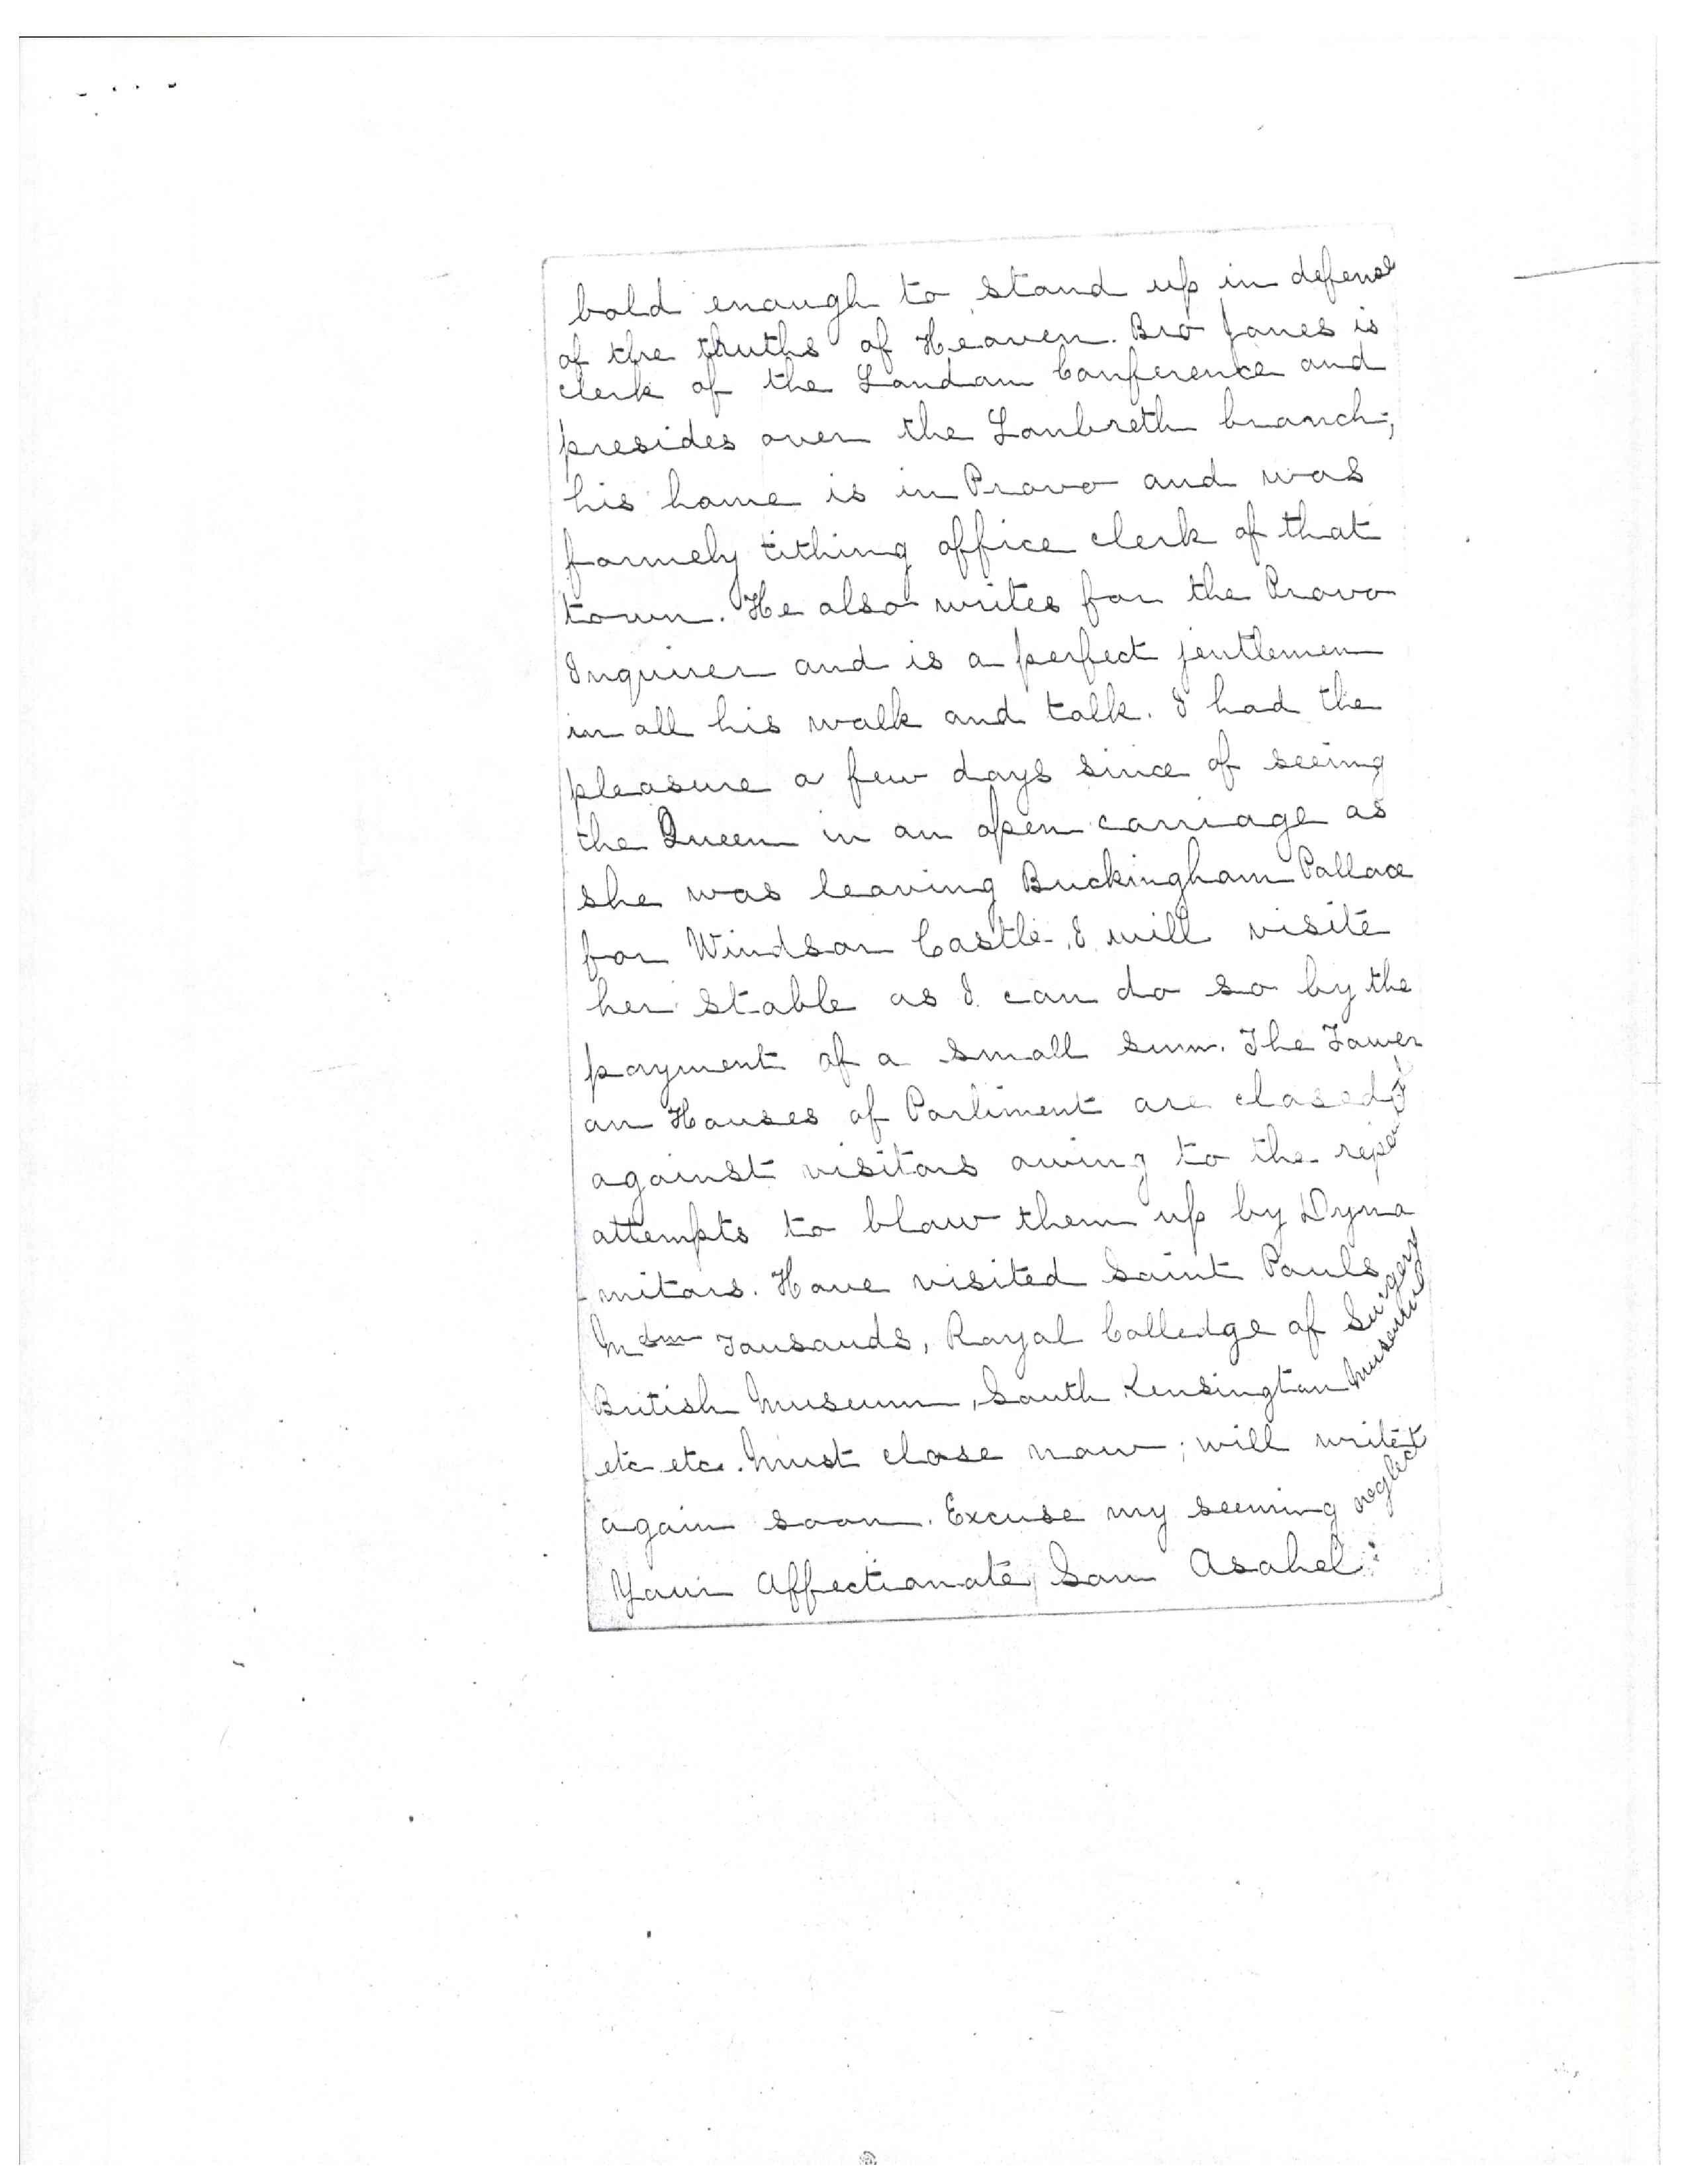 bold enough to stand up in defense
of the truths of Heaven. Bro Jones is
clerk of the London Conference and
presides over the Lanbreth branch;
his home is in Provo and was
formely tithing office clerk of that
town. He also writes for the Provo
Inquirer and is a perfect jentlemen
in all his walk and talk. I had the
pleasure a few days since of seeing
the Queen in an open carriage as
she was leaving Buckingham Pallace
for Windsor Castle. I will visite
her stable as I can do so by the
payment of a small sum. The Tower
an Houses of Parliment are closed
against visitors owing to the
attempts to blow them up by Dyna
mitors. Have visited Saint Pauls
Mdm Tousauds, Royal Colledge of Surgery
British Museum, South Kensington Museum
etc etc. Must close now; will write
again soon. Excuse my seeming neglect
Your Affectionate Son Asahel